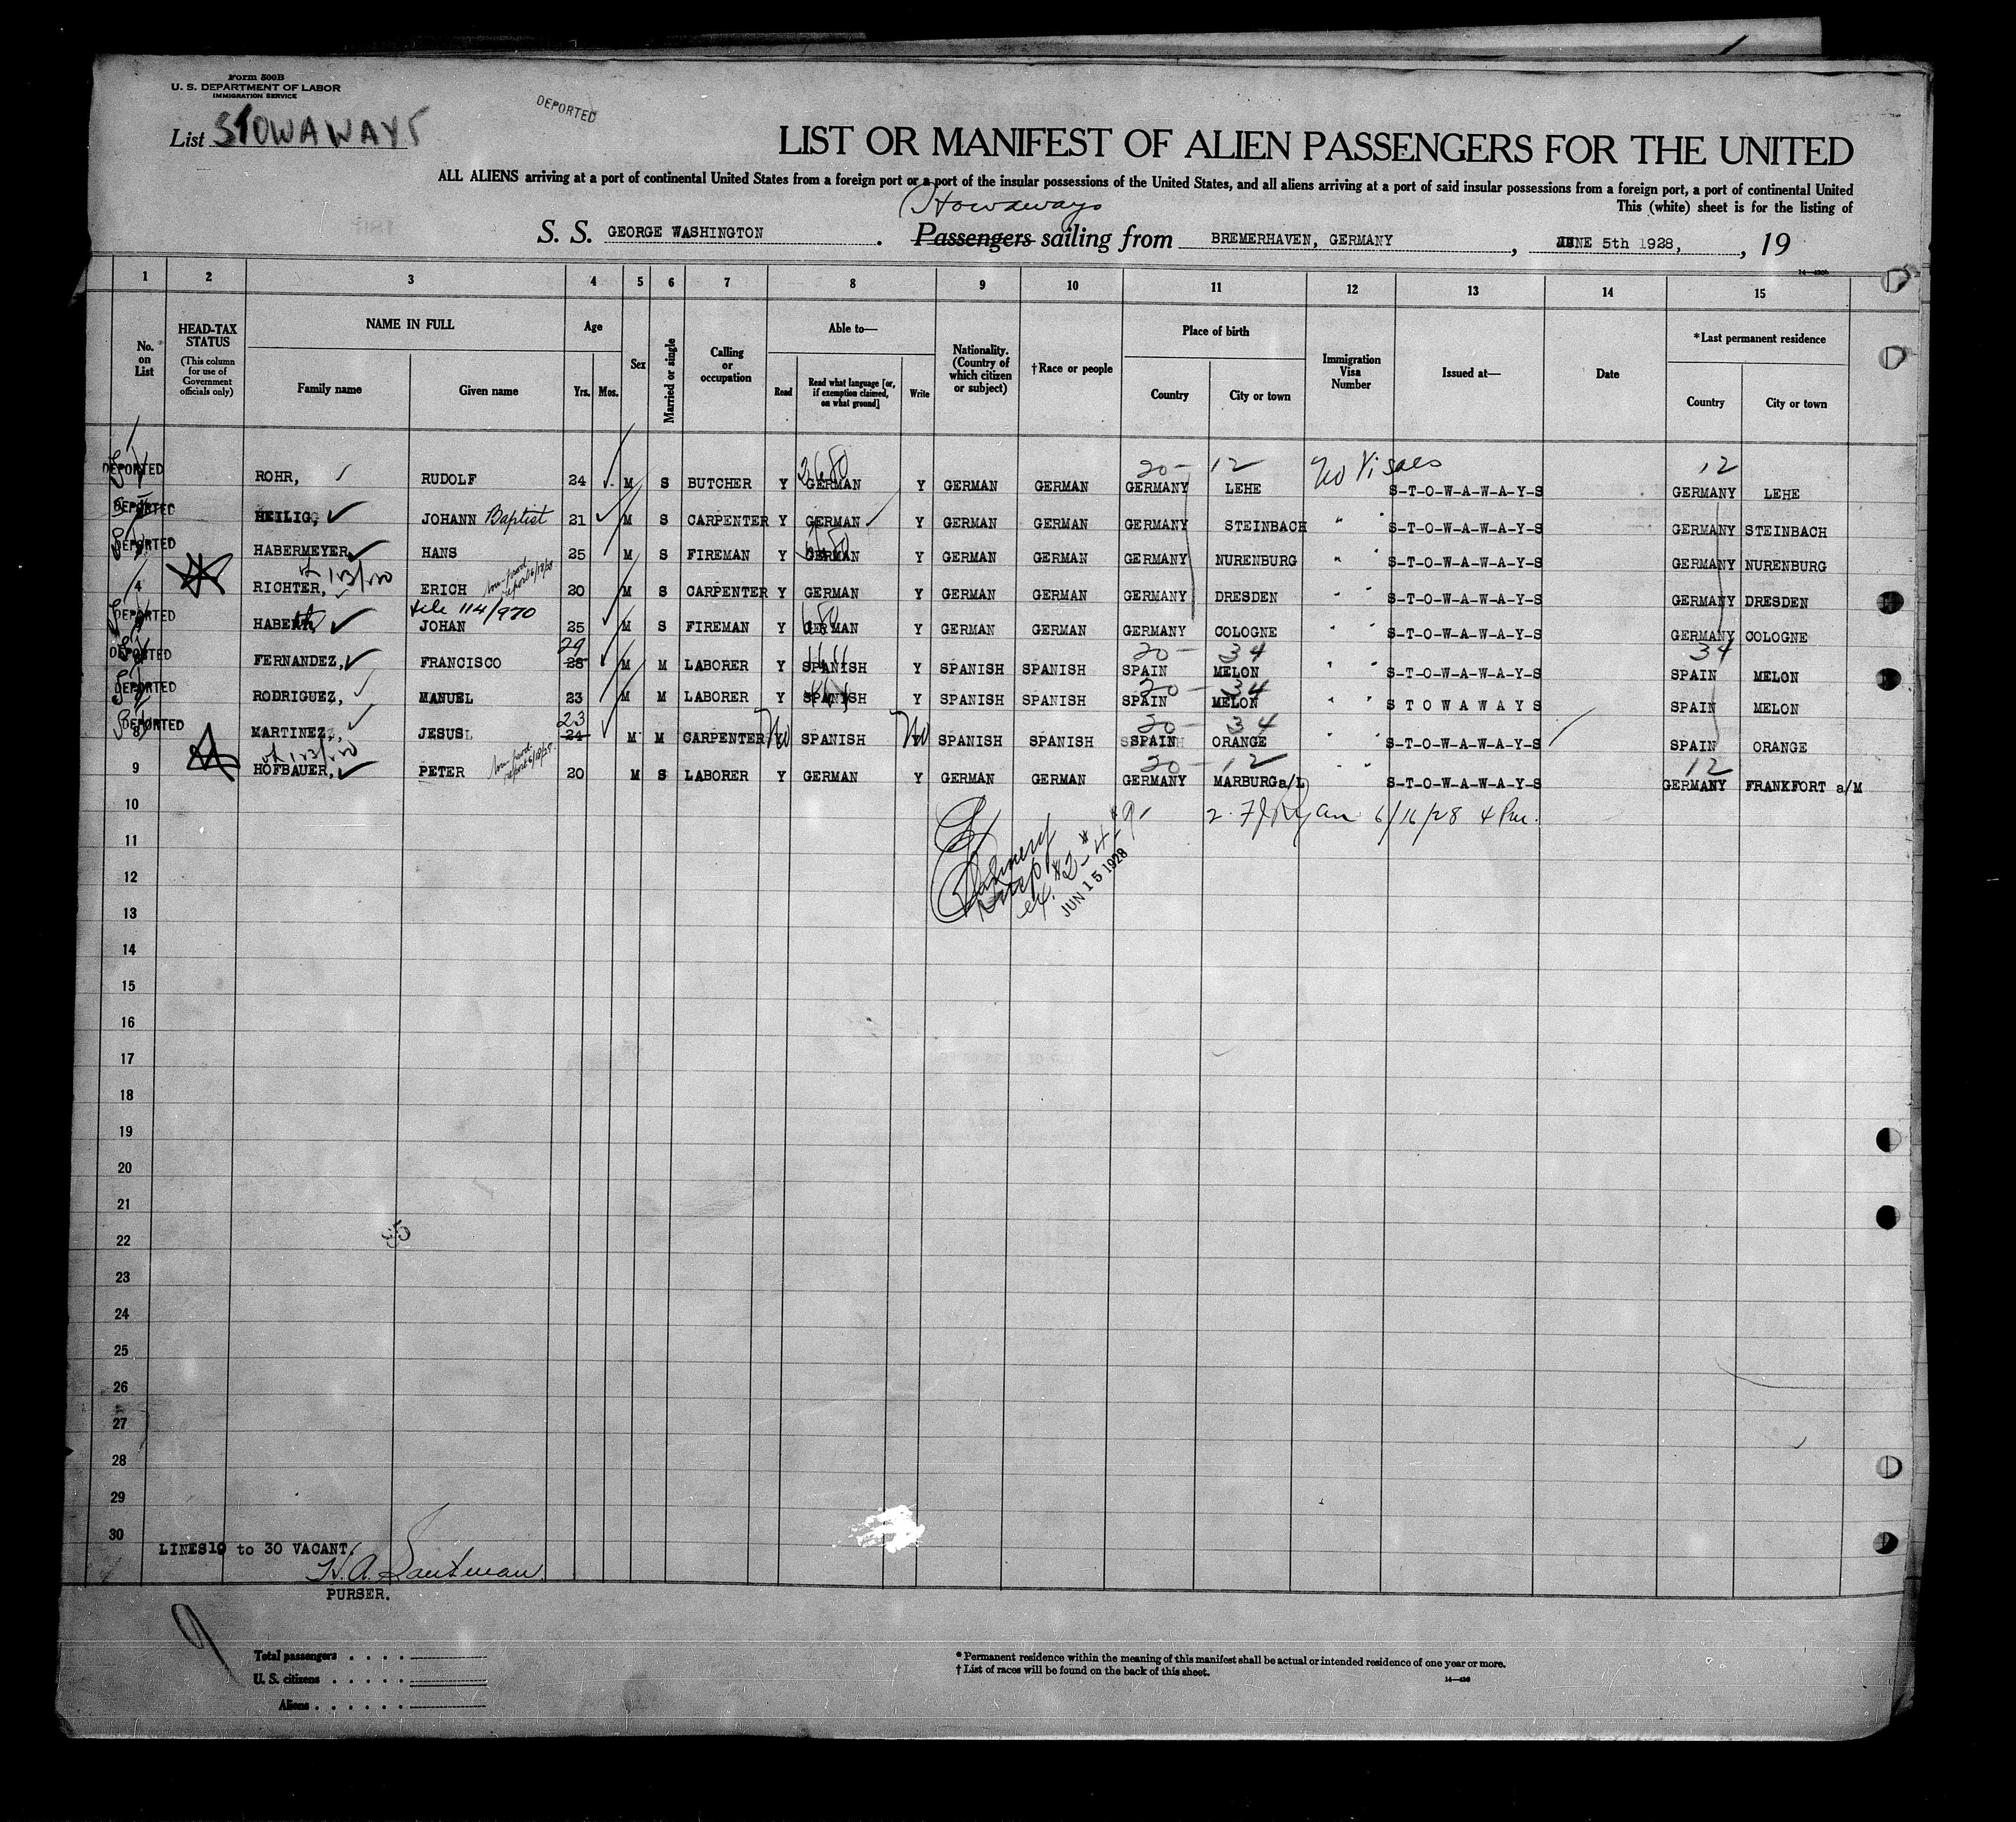 Form 500B
U. S. DEPARTMENT OF LABOR
IMMIGRATION SERVICE
DEPORTED
List STOWAWAYS
LIST OR MANIFEST OF ALIEN PASSENGERS FOR THE UNITED
ALL ALIENS arriving at a port of continental United States from a foreign port or a port of the insular possessions of the United States, and all aliens arriving at a port of said insular possessions from a foreign port, a port of continental United
This (white) sheet is for the listing of
Stowaways
S. S. GEORGE WASHINGTON . Passengers sailing from BREMERHAVEN, GERMANY , JUNE 5th 1928, , 19
1 2 3 4 5 6 7 8 9 10 11 12 13 14 15
No. on List
HEAD-TAX STATUS
(This column for use of Government officials only)
NAME IN FULL
Family name Given name
Age
Yrs. Mos.
Sex
Married or single
Calling or occupation
Able to—
Read
Read what language [or, if exemption claimed, on what ground]
Write
Nationality. (Country of which citizen or subject)
†Race or people
Place of birth
Country City or town
Immigration Visa Number
Issued at—
Date
*Last permanent residence
Country City or town
20- 12 No Visaes 12
DEPORTED ROHR, RUDOLF 24 M S BUTCHER Y GERMAN Y GERMAN GERMAN GERMANY LEHE S-T-O-W-A-W-A-Y-S GERMANY LEHE
DEPORTED HEILIG, JOHANN Baptist 21 M S CARPENTER Y GERMAN Y GERMAN GERMAN GERMANY STEINBACH " " S-T-O-W-A-W-A-Y-S GERMANY STEINBACH
DEPORTED HABERMEYER HANS 25 M S FIREMAN Y GERMAN Y GERMAN GERMAN GERMANY NURENBURG " " S-T-O-W-A-W-A-Y-S GERMANY NURENBURG
4 RICHTER, ERICH 20 M S CARPENTER Y GERMAN Y GERMAN GERMAN GERMANY DRESDEN " " S-T-O-W-A-W-A-Y-S GERMANY DRESDEN
file 114/970
DEPORTED JOHAN 25 M S FIREMAN Y GERMAN Y GERMAN GERMAN GERMANY COLOGNE " " S-T-O-W-A-W-A-Y-S GERMANY COLOGNE
29 20- 34 34
DEPORTED FERNANDEZ, FRANCISCO 28 M M LABORER Y SPANISH Y SPANISH SPANISH SPAIN MELON " " S-T-O-W-A-W-A-Y-S SPAIN MELON
20- 34
DEPORTED RODRIGUEZ, MANUEL 23 M M LABORER Y SPANISH Y SPANISH SPANISH SPAIN MELON " " S T O W A W A Y S SPAIN MELON
23 20- 34
DEPORTED 8 MARTINEZ, JESUS 24 M M CARPENTER No SPANISH No SPANISH SPANISH SPAIN ORANGE S-T-O-W-A-W-A-Y-S SPAIN ORANGE
20- 12 12
9 HOFBAUER, PETER 20 M S LABORER Y GERMAN Y GERMAN GERMAN GERMANY MARBURG a/L " " S-T-O-W-A-W-A-Y-S GERMANY FRANKFORT a/M
10
2. F J Ryan 6/16/28 4 Pm.
11
JUN 15 1928
12
13
14
15
16
17
18
19
20
21
22
23
24
25
26
27
28
29
30
LINES 10 to 30 VACANT.
PURSER.
9
Total passengers
U. S. citizens
Aliens
* Permanent residence within the meaning of this manifest shall be actual or intended residence of one year or more.
† List of races will be found on the back of this sheet.